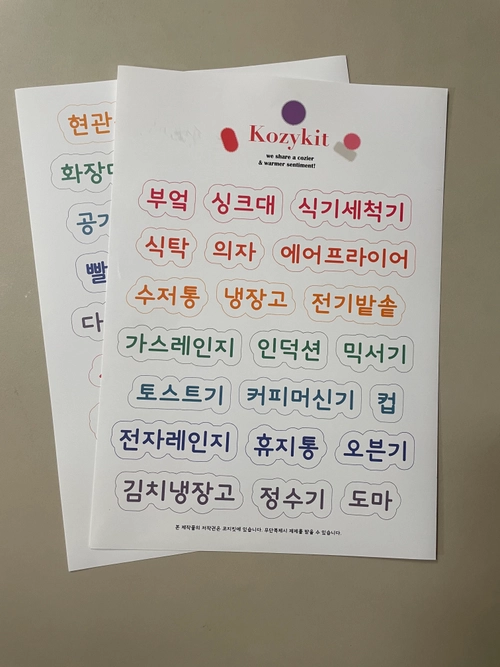 Kozykit
we share a cozier
& warmer sentiment!
부엌 싱크대 식기세척기
식탁 의자 에어프라이어
수저통 냉장고 전기밭솥
가스레인지 인덕션 믹서기
토스트기 커피머신기 컵
전자레인지 휴지통 오븐기
김치냉장고 정수기 도마
본 제작물의 저작권은 코지킷에 있습니다. 무단복제시 제재를 받을 수 있습니다.
현관
화장
공기
빨
다